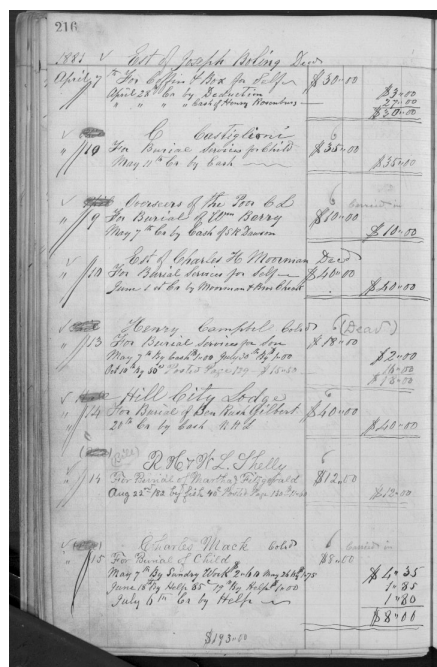 216
1881 Est of Joseph Boling Decd
April 7 For Coffin & Box for Self $30.00
April 28th Cr by Deduction $3.00
" " " " Cash of Henry 27.00
$30.00
C Castiglioni
10 For Burial Services for Child $35.00
May 11th Cr by Cash $35.00
Overseers of the Poor C L carried in
" 9 For Burial of Wm Berry $10.00
May 7th Cr by Cash of Dawson $10.00
Est of Charles H Moorman Decd
" 10 For Burial Services for Self $40.00
June 1st Cr by Moorman & Bro Check $40.00
Henry Campbell Cold (Dead)
" 13 For Burial Services for Son $18.00
May 7th By Cash 1.00 July 30th By 1.00 $2.00
Oct 10th By Posted Page 179 16.00
$18.00
Hill City Lodge
" 14 For Burial of Ben Rush Gilbert $40.00
20th Cr by Cash $40.00
(Bill)
R H & K L Shelly
" 14 For Burial of Martha Fitzgerald $12.00
Aug 22nd 182 by Posted Page $12.00
Charles Mack Cold carried in
" 15 For Burial of Child $8.00
May 7th By Sundry Work May 26th 1.75 $4.35
June 18th By Help 85 By Help 1.00 1.85
July 4th Cr by Help 1.80
$8.00
$193.00